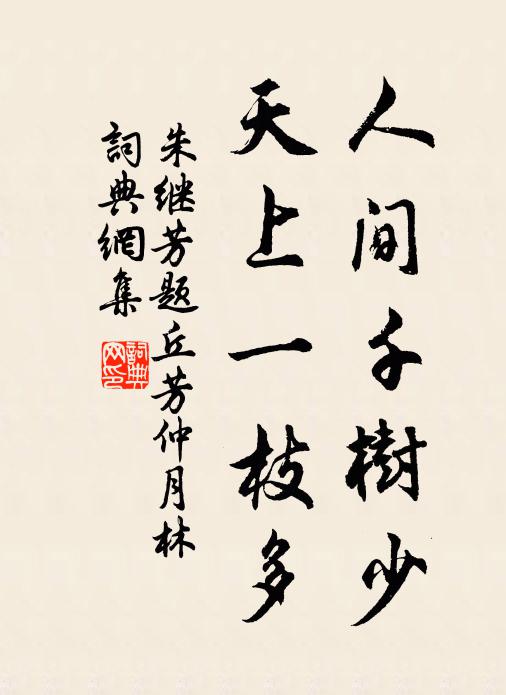 人間千樹少
天上一枝多
朱继芳题丘芳仲月林
詞典網集
詞典网印